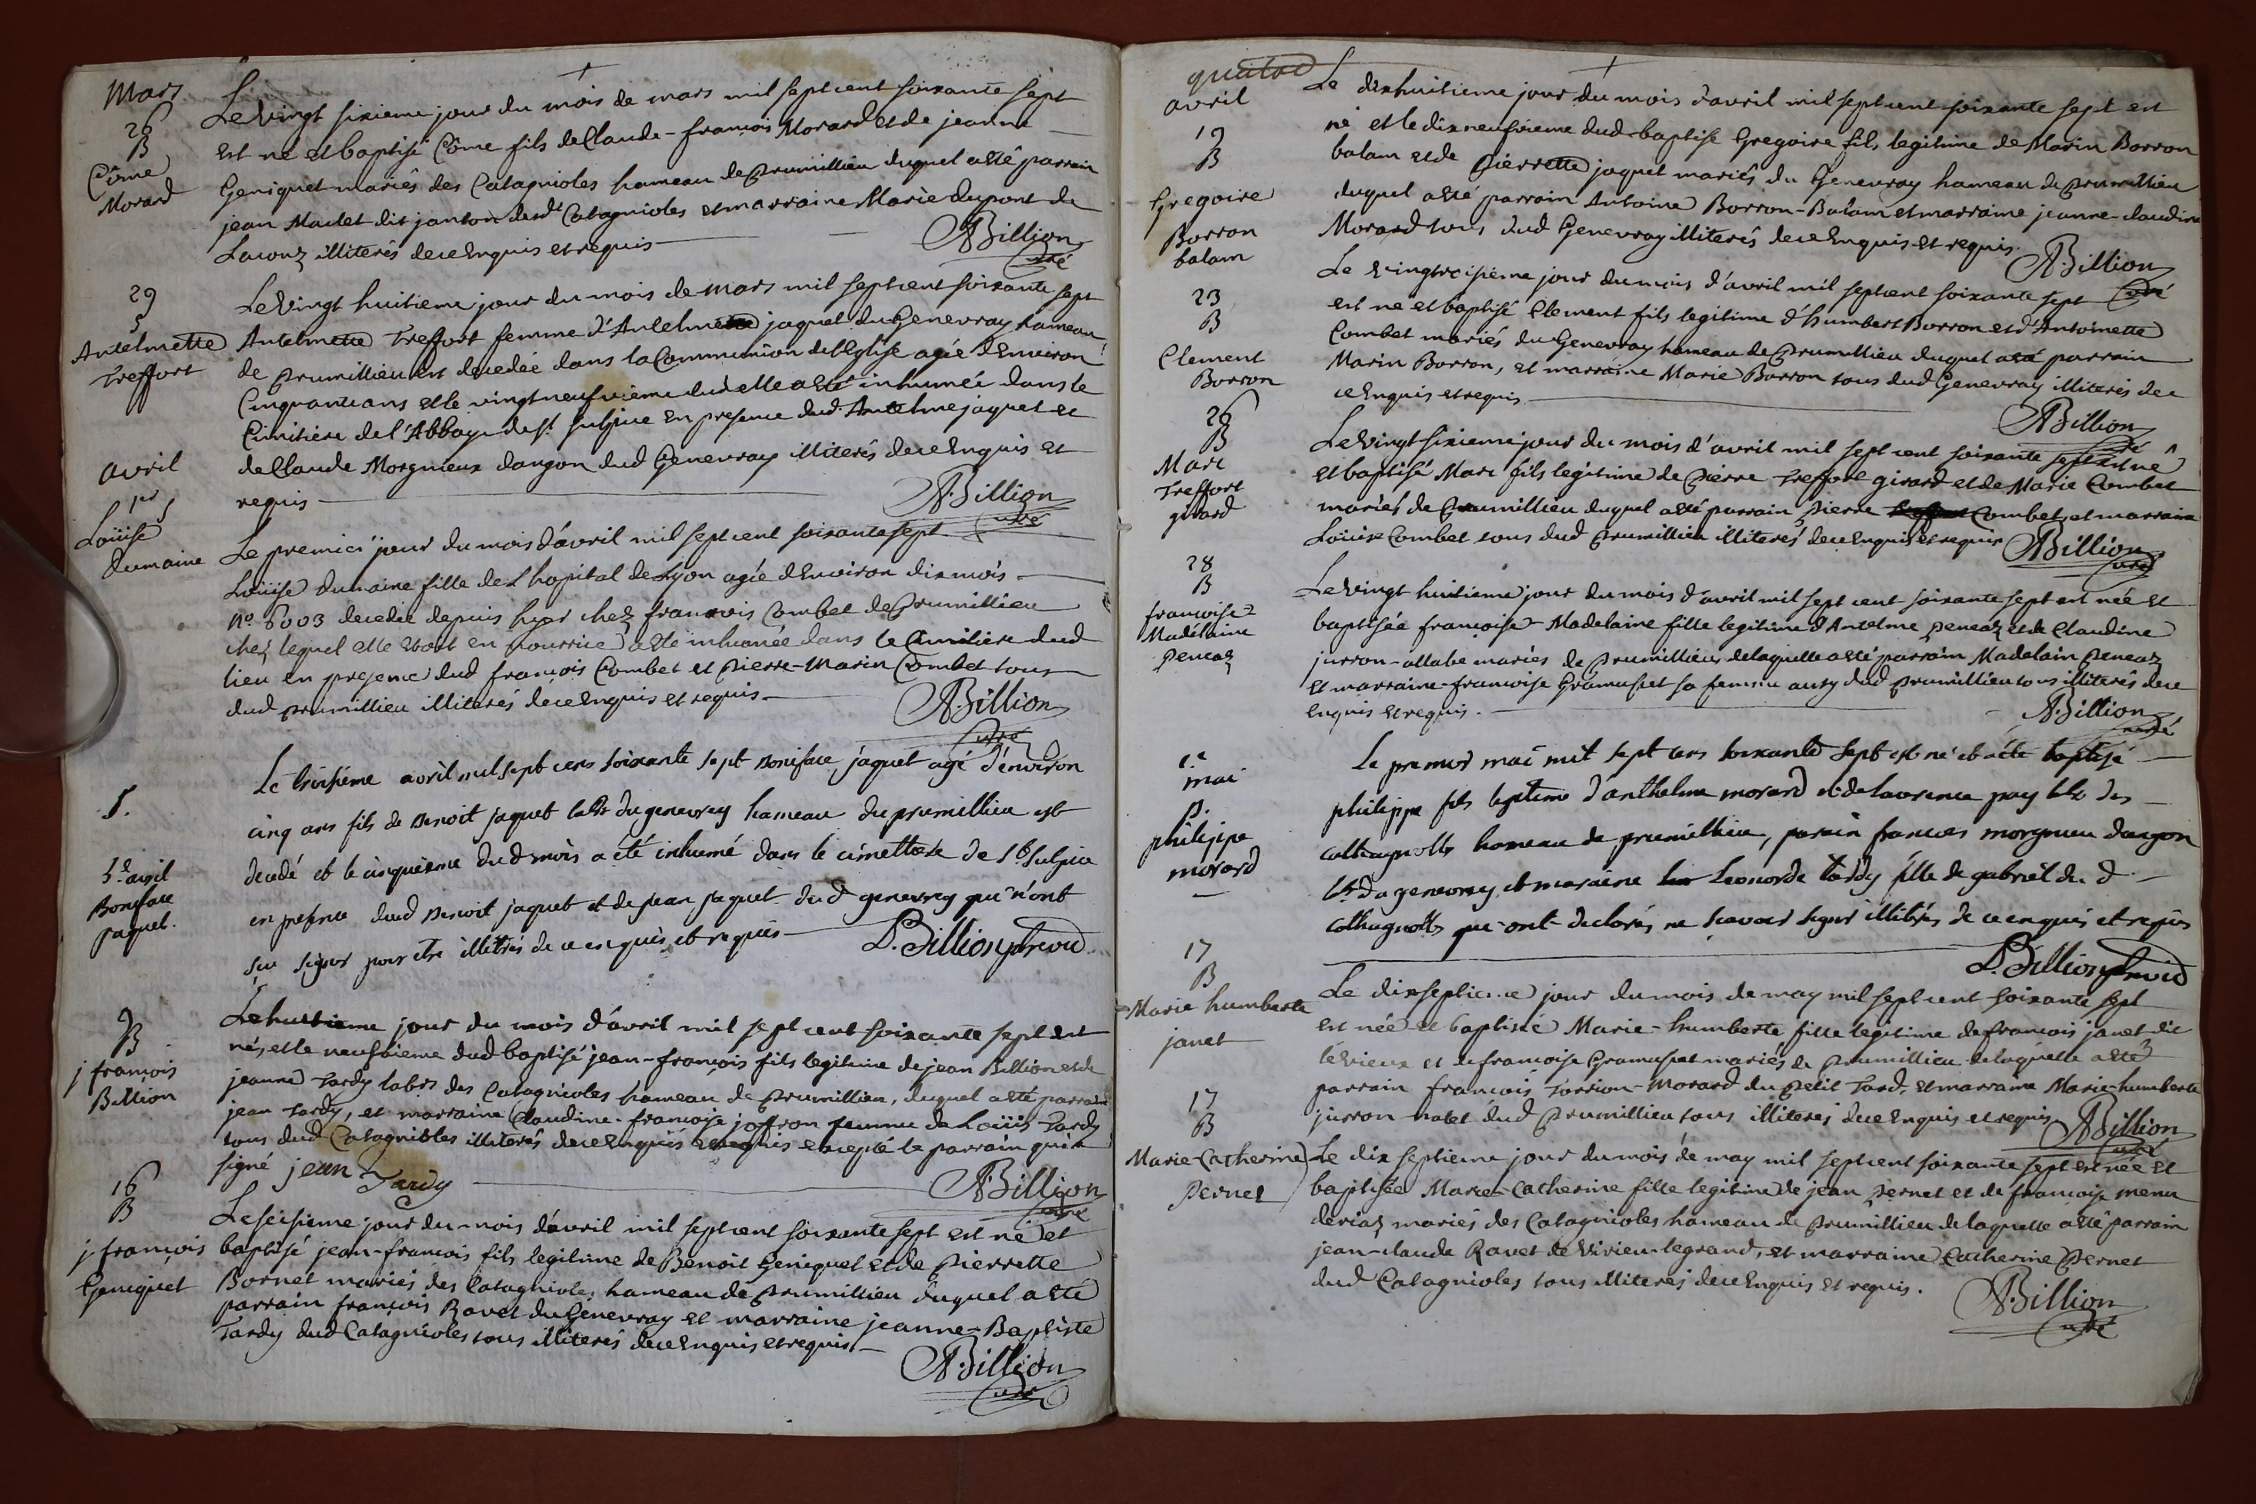 Mars
26
B
Côme
Morard
Le vingt sixieme jour du mois de mars mil sept cent soixante sept
est né et baptisé Côme fils de Claude-françois Morard et de jeanne
Geniquet mariés des Catagnioles hameau de Prumillieu duquel a eté parrain
jean Maclet dit janton desdt Catagnioles et marraine Marie dupont de
Lacouz illiterés de ce Enquis et requis
A. Billion
curé
29
S
Antelmette
Treffort
Le vingt huitieme jour du mois de mars mil sept cent soixante sept
Antelmette Treffort femme d'Antelme jaquet du Genevray hameau
de Prumillieu est decedée dans la Communion de l'Eglise agée d'Environ
Cinquante ans et le vingt neufvieme dud elle a eté inhumée dans le
Cimitiere de l'Abbaye de St Sulpice en presence dud Antelme jaquet et
de Claude Morgnieux dangon dud Genevray illiterés de ce Enquis et
requis
A. Billion
curé
avril
1er S
Loüise
dumaine
Le premier jour du mois d'avril mil sept cent soixante sept
Loüise dumaine fille de L'hopital de Lyon agée d'Environ dix mois
no 6003 decedée depuis hyer chez françois Combet de Prumillieu
chez lequel elle etoit en nourrice a eté inhumée dans le Cimitiere dud
lieu en presence dud françois Combet et Pierre-Marin Combet tous
dud prumillieu illiterés de ce Enquis et requis
A. Billion
curé
S.
5e avril
Boniface
jaquet.
Le troisieme avril mil sept cens soixante sept Boniface jaquet agé d'environ
cinq ans fils de Benoit jaquet labr du genevrey hameau du prumillieu est
decedé et le cinquieme dud mois a été inhumé dans le cimettere de St Sulpice
en presence dud Benoit jaquet et de jean jaquet dud genevrey qui n'ont
sçu signer pour etre illitrés de ce enquis et requis
L. Billion
9
B
j françois
Billion
Le huitieme jour du mois d'avril mil sept cent soixante sept est
né, et le neufvieme dud baptisé jean-françois fils legitime de jean Billion et de
jeanne Tardy labrs des Catagnioles hameau de Prumillieu, duquel a eté parrain
jean Tardy, et marraine Claudine-françoise joffron femme de Loüis Tardy
tous dud Catagnioles illiterés de ce Enquis et requis excepté le parrain qui a
signé jean Tardy
A. Billion
curé
16
B
j françois
Geniquet
Le seisieme jour du mois d'avril mil sept cent soixante sept est né et
baptisé jean-françois fils legitime de Benoit Geniquet et de Pierrette
Bornet mariés des Catagnioles hameau de Prumillieu duquel a eté
parrain françois Ravet du Genevray et marraine jeanne-Baptiste
Tardy dud Catagnioles tous illiterés de ce Enquis et requis
A. Billion
curé
avril
19
B
Gregoire
Borron
balam
Le dix huitieme jour du mois d'avril mil sept cent soixante sept est
né et le dix neufvieme dud baptisé Gregoire fils legitime de Marin Borron
balam et de Pierrette jaquet mariés du Genevray hameau de prumillieu
duquel a eté parrain Antoine Borron-Balam et marraine jeanne-claudine
Morard tous dud Genevray illiterés de ce Enquis et requis.
A. Billion
curé
23
B
Clement
Borron
Le vingtroisieme jour du mois d'avril mil sept cent soixante sept
est né et baptisé Clement fils legitime d'humbert Borron et d'Antoinette
Combet mariés du Genevray hameau de Prumillieu duquel a eté parrain
Marin Borron, et marraine Marie Borron tous dud Genevray illiterés de
ce Enquis et requis
A. Billion
curé
26
B
Marc
Treffort
girard
Le vingt sixieme jour du mois d'avril mil sept cent soixante sept est né
et baptisé Marc fils legitime de Pierre Treffort girard et de Marie Combet
mariés de Prumillieu duquel a eté parrain Pierre Combet, et marraine
Loüise Combet tous dud Prumillieu illiterés de ce Enquis et requis
A. Billion
curé
28
B
françoise-
Madelaine
Peneaz
Le vingt huitieme jour du mois d'avril mil sept cent soixante sept est née et
baptisée françoise-Madelaine fille legitime d'Antelme Peneaz et de Claudine
jurron-allabe mariés de Prumillieu de laquelle a eté parrain Madelain Peneaz
et marraine françoise Gramuset sa femme aussy dud prumillieu tous illiterés de ce
enquis et requis.
A. Billion
curé
1er
mai
B.
philippe
morard
Le premier mai mil sept cens soixante sept est né et a été baptisé
philippe fils legitime d'anthelme morard et de laurence pay labr des
cathagnolls hameau de prumillieu, parain francois morgnieu dangon
labr du genevrey et maraine Leonorde tardy fille de gabriel du d.
cathagnolls qui ont declarés ne scavoir signer illitrés de ce enquis et requis
L. Billion
17
B
Marie humberte
janet
Le dix septieme jour du mois de may mil sept cent soixante sept
est née et baptisée Marie-humberte fille legitime de françois janet dit
levieux et de françoise Gramuset mariés de Prumillieu de laquelle a eté
parrain françois Torrion-Morard du Petit Tard, et marraine Marie-humberte
jurron natet dud Prumillieu tous illiterés de ce Enquis et requis
A. Billion
curé
17
B
Marie-Catherine
Pernet
Le dix septieme jour du mois de may mil sept cent soixante sept est née et
baptisée Marie-Catherine fille legitime de jean Pernet et de françoise menu
deriaz mariés des Catagnioles hameau de Prumillieu de laquelle a eté parrain
jean-claude Ravet de Virieu-legrand, et marraine Catherine Pernet
dud Catagnioles tous illiterés de ce Enquis et requis.
A. Billion
curé